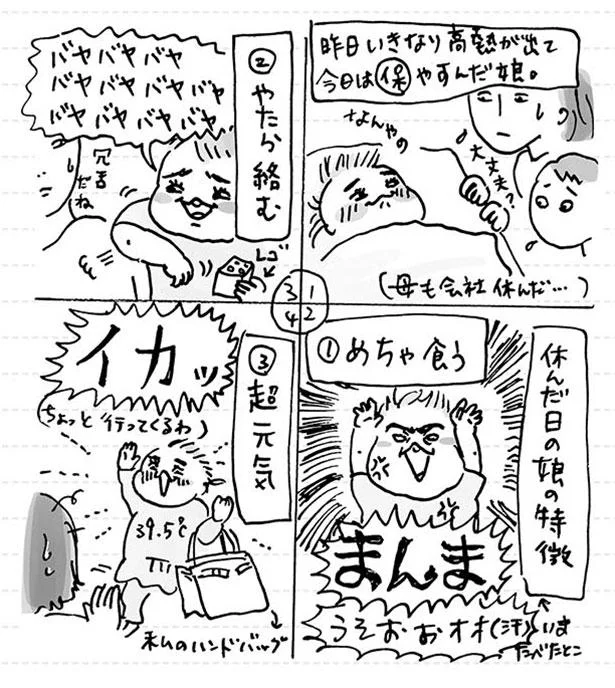 昨日いきなり高熱が出て
今日は保やすんだ娘。
大丈夫?
(母も会社休んだ…)
3 1
4 2
休んだ日の娘の特徴
①めちゃ食う
まんま
うそおぉオオ(汗)
いま
たべたとこ
②やたら絡む
バヤバヤバヤ
バヤバヤバヤバヤ
バヤバヤバヤバヤ
冗舌
だね
レゴ
③超元気
イカッ
(ちょっと行ってくるわ)
39.5℃
私のハンドバッグ